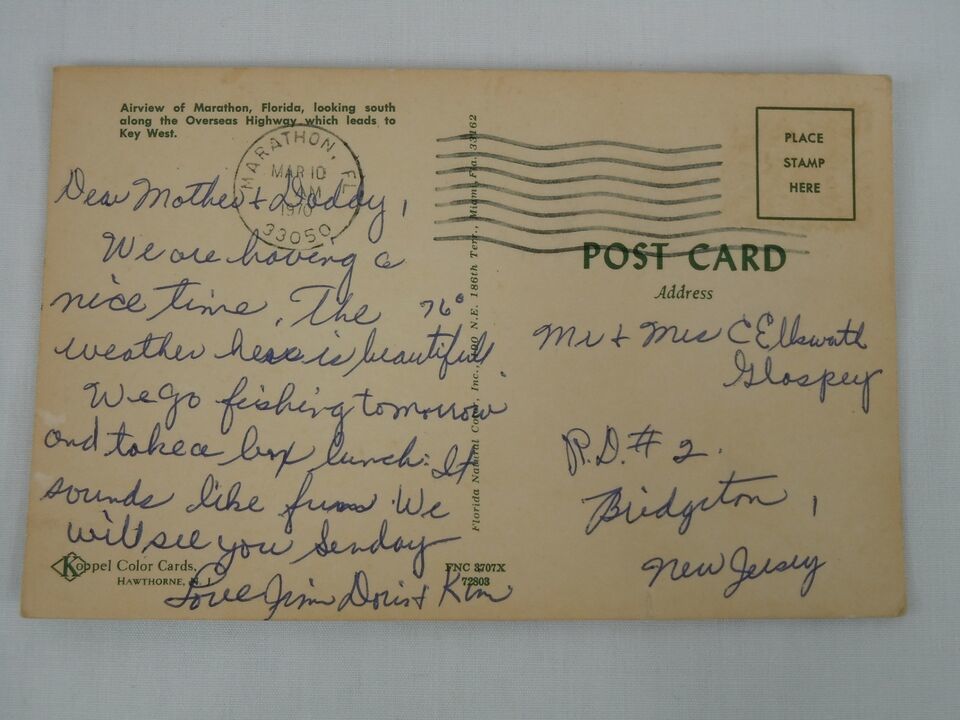 Airview of Marathon, Florida, looking south
along the Overseas Highway which leads to
Key West.
MARATHON, FL
MAR 10
AM
1970
33050
Dear Mother & Daddy,
We are having a
nice time. The 76°
weather here is beautiful
We go fishing tomorrow
and take a box lunch. It
sounds like fun We
will see you Sunday
Love Jim Doris & Kim
Koppel Color Cards,
HAWTHORNE, N. J.
Florida Natural Color, Inc., N.E. 186th Terr., Miami, Fla. 33162
FNC 3707X
72803
PLACE
STAMP
HERE
POST CARD
Address
Mr & Mrs C Ellsworth
Glaspey
R.D. # 2.
Bridgeton,
New Jersey